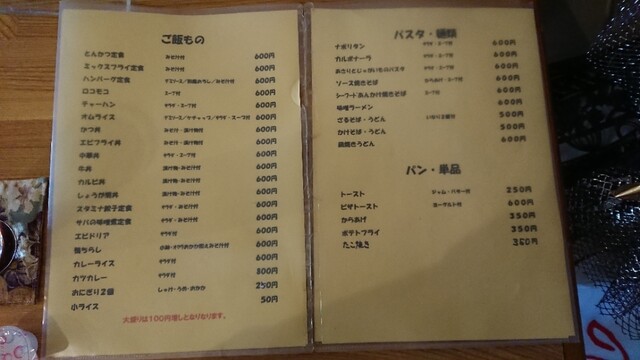 ご飯もの
とんかつ定食 みそ汁付 600円
ミックスフライ定食 みそ汁付 600円
ハンバーグ定食 デミソース/和風おろし/みそ汁付 600円
ロコモコ スープ付 600円
チャーハン サラダ・スープ付 600円
オムライス デミソース/ケチャップ/サラダ・スープ付 600円
かつ丼 みそ汁・漬け物付 600円
エビフライ丼 みそ汁・漬け物付 600円
中華丼 サラダ・スープ付 600円
牛丼 漬け物・みそ汁付 600円
カルビ丼 漬け物・みそ汁付 600円
しょうが焼丼 漬け物・みそ汁付 600円
スタミナ餃子定食 サラダ・みそ汁付 600円
サバの味噌煮定食 サラダ・みそ汁付 600円
エビドリア サラダ付 600円
みそ汁付 600円
カレーライス サラダ付 600円
カツカレー サラダ付 800円
おにぎり2個 しゃけ・うめ・おかか 250円
小ライス 50円
大盛りは100円増しとなります。
パスタ・麺類
ナポリタン サラダ・スープ付 600円
カルボナーラ サラダ・スープ付 600円
あさりとじゃがいものパスタ サラダ・スープ付 600円
ソース焼きそば スープ付 600円
シーフードあんかけ焼きそば スープ付 600円
味噌ラーメン 600円
ざるそば・うどん いなり2個付 500円
かけそば・うどん 500円
鍋焼きうどん 600円
パン・単品
トースト ジャム・バター付 250円
ピザトースト ヨーグルト付 600円
からあげ 350円
ポテトフライ 350円
たこ焼き 350円